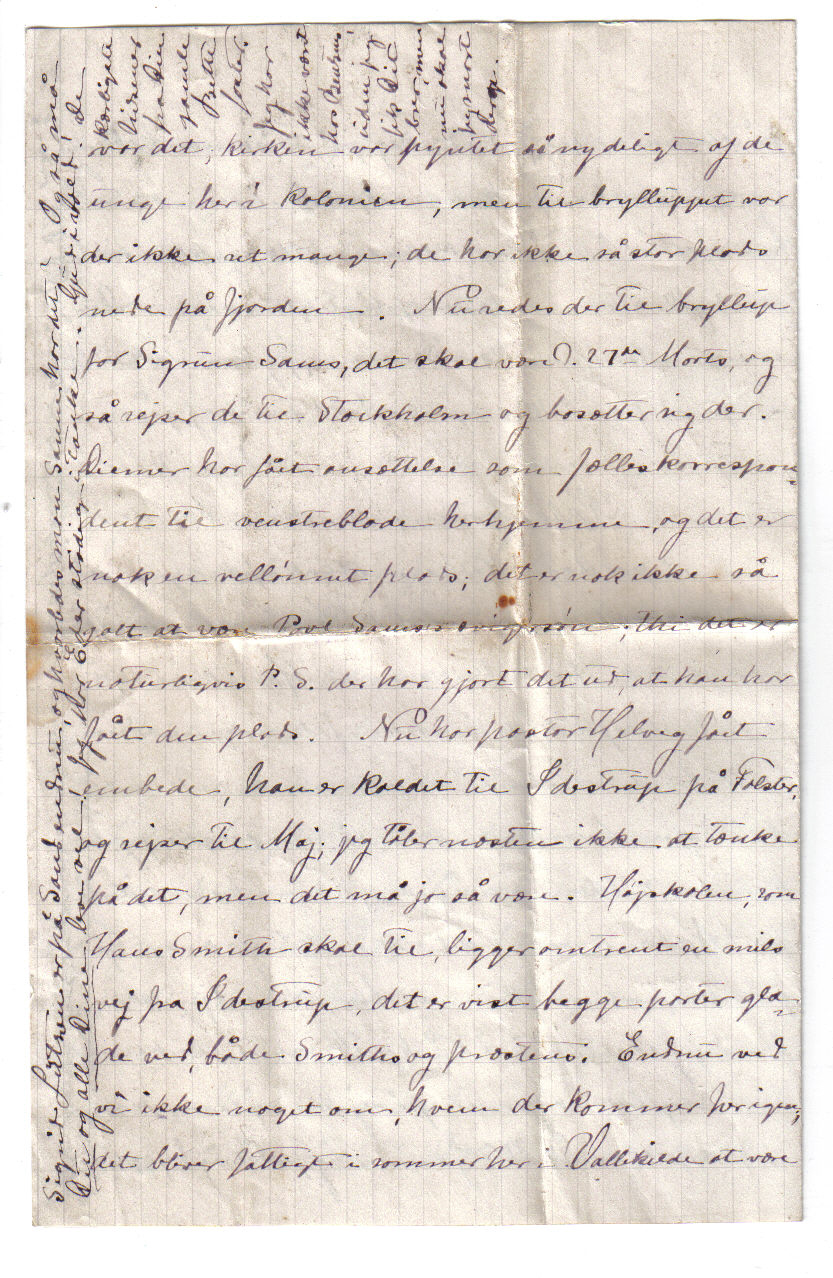 var det; kirken var pyntet så nydeligt af de
unge her i Kolonien, men til brylluppet var
der ikke ret mange; de har ikke så stor plads
nede på fjorden. Nu redes der til bryllup
for Sigrun Sams, det skal være d. 27de Marts, og
så rejser de til Stockholm og bosætter sig der.
Diemer har fået ansættelse som fælleskorrespon-
dent til venstreblade herhjemme, og det er
nok en vellønnet plads; det er nok ikke så
galt at være Povl Sams's svigersøn; thi det er
naturligvis P. S. der har gjort det ud, at han har
fået den plads. Nu har pastor Helveg fået
embede, han er kaldet til Idestrup på Falster,
og rejser til Maj; jeg tåler næsten ikke at tænke
på det, men det må jo så være. Højskolen, som
Hans Smith skal til, ligger omtrent en mils
vej fra Idestrup, det er vist begge parter gla-
de ved, både Smiths og præstens. Endnu ved
vi ikke noget om, hvem der kommer her igen;
det bliver fattigt i sommer her i Vallekilde at være
Sigrid er på Sand endnu, og hvorledes mon Sanne har det? Og så må
Du og alle Dine leve vel! Jeg har Eder stadig i tanke. Gud i vold! De
kærligste
hilsener
fra Din
gamle
Jeg har
ikke været
hos
siden jeg
fik Dit
brev, men
nu skal
jeg snart
derop.